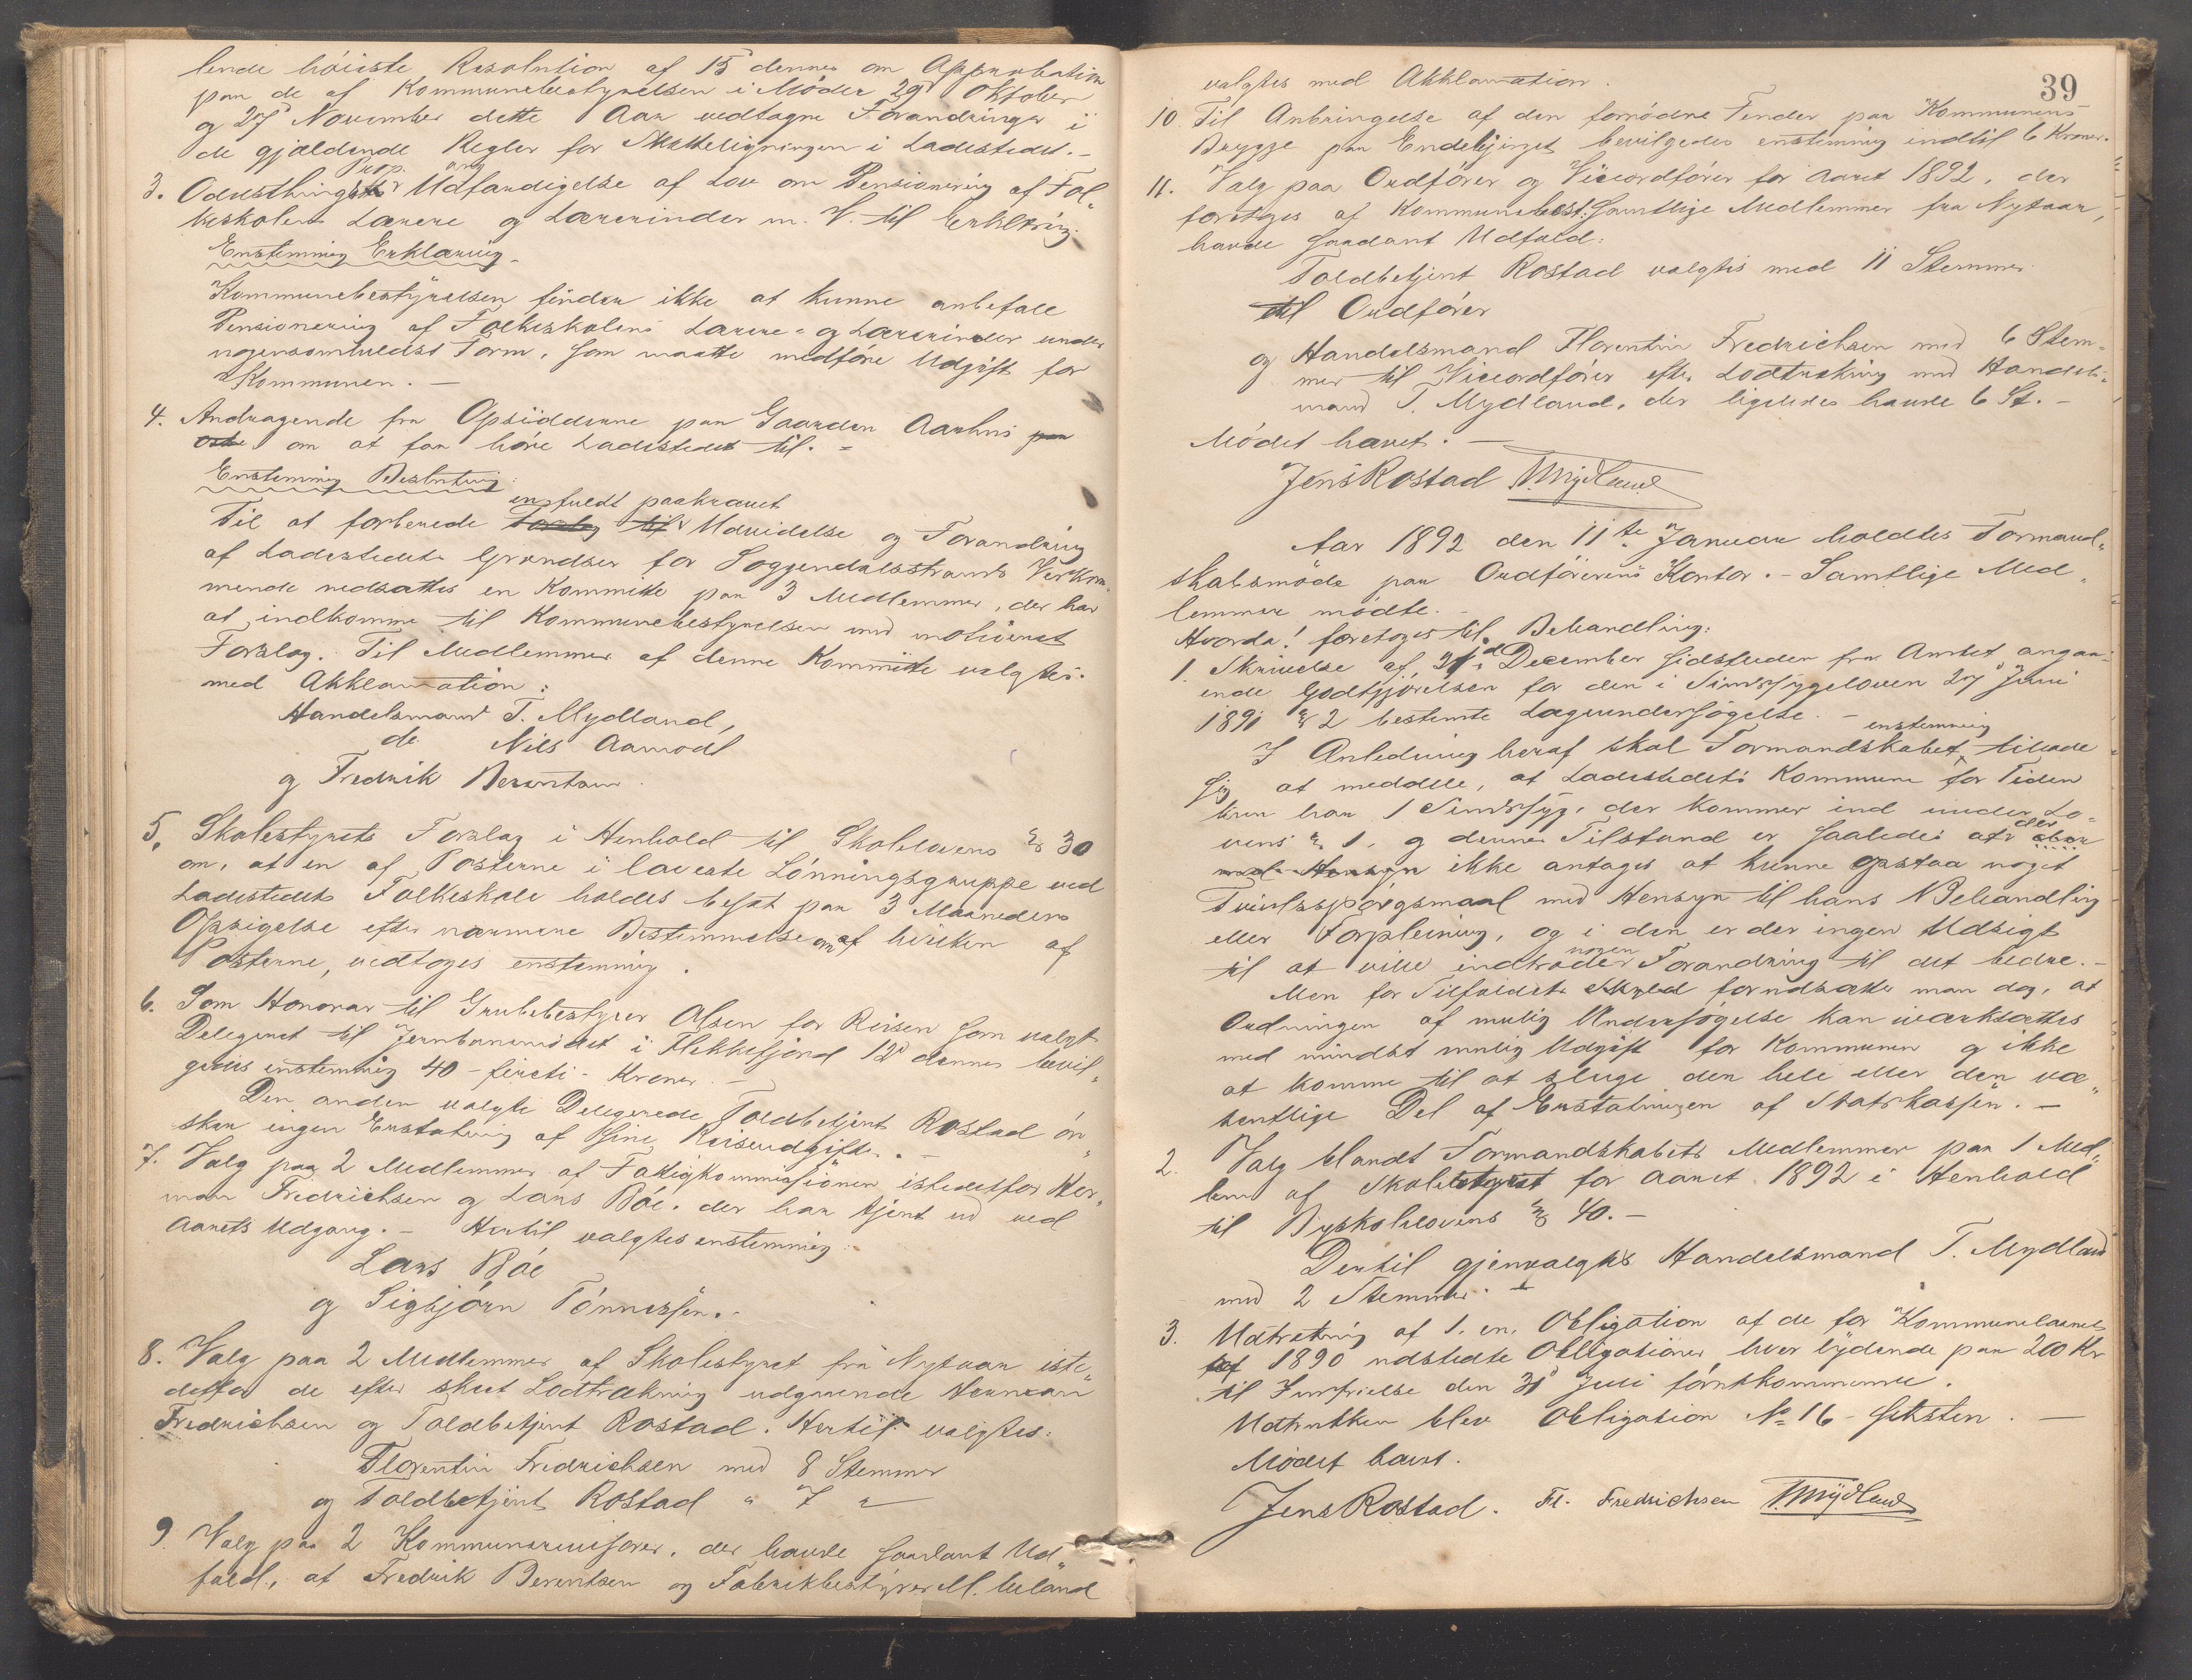 lende høieste Resolution af 15 dennes om Approbation
paa de af Kommunebestyrelsen i Møder 29 Oktober
og 27 November dette Aar vedtagne Forandringer i
de gjældende Regler for Skatteligningen i Ladestedet. -
Prop. ang
3. Odelsthings Udfærdigelse af Lov om Pensionering af Fol-
keskolens Lærere og Lærerinder m. V. til Erklæring.
Enstemmig Erklæring.
Kommunebestyrelsen finder ikke at kunne anbefale
Pensionering af Folkeskolens Lærere- og Lærerinder under
nogensomhelst Form, som maatte medføre Udgift for
Kommunen. -
4. Andragende fra Opsidderne paa Gaarden Aarhus paa
om at faa høre Ladestedet til. -
Enstemmig Beslutning:
en fuldt paakrævet
Til at forberede Forslag til Udvidelse og Forandring
af Ladestedets Grændser for Soggendalsstrands Vedkom-
mende nedsættes en Kommitte paa 3 Medlemmer, der har
at indkomme til Kommunebestyrelsen med motiveret
Forslag. Til Medlemmer af denne Kommitte valgtes
med Akklamation:
Handelsmand T. Mydland,
do. Nils Aamodt
og Fredrik Berentsen.
5. Skolestyrets Forslag i Henhold til Skolelovens § 30
om, at en af Posterne i laveste Lønningsgruppe ved
Ladestedets Folkeskole holdes besat paa 3 Maaneders
Opsigelse efter nærmere Bestemmelse om af hvilken af
Posterne, vedtoges enstemmig.
6. Som Honorar til Grubebestyrer Olsen for Reisen som valgt
Delegeret til Jernbanemødet i Flekkefjord 12 dennes bevil-
gedes enstemmig 40 - firti - Kroner. -
Den anden valgte Delegerede Toldbetjent Rostad øn-
sker ingen Erstatning af sine Reiseudgifter. -
7. Valg paa 2 Medlemmer af Fattigkommissionen istedetfor Her-
man Fredrichsen og Lars Bøe, der har tjent ud ved
Aarets Udgang. - Hertil valgtes enstemmig:
Lars Bøe
og Sigbjørn Tønnessen. -
8. Valg paa 2 Medlemmer af Skolestyret fra Nytaar iste-
detfor de efter skeet Lodtrækning udgaaende Herman
Fredrichsen og Toldbetjent Rostad. Hertil valgtes:
Florentin Fredrichsen med 8 Stemmer
og Toldbetjent Rostad " 7 "
9. Valg paa 2 Kommunerevisorer, der havde saadant Ud-
fald, at Fredrik Berentsen og Fabrikbestyrer M. Meland
39
valgtes med Akklamation.
10. Til Anbringelse af den fornødne Fender paa Kommunens
Brygge paa Endebjerget bevilgedes enstemmig indtil 6 Kroner.
11. Valg paa Ordfører og Viceordfører for Aaret 1892, der
foretoges af Kommunebest. samtlige Medlemmer fra Nytaar,
havde saadant Udfald:
Toldbetjent Rostad valgtes med 11 Stemmer
til Ordfører
og Handelsmand Florentin Fredrichsen med 6 Stem-
mer til Viceordfører efter Lodtrækning med Handels-
mand T. Mydland, der ligeledes havde 6 St. -
Mødet hævet. -
Jens Rostad T. Mydland
Aar 1892 den 11te Januar holdtes Formand-
skabsmøde paa Ordførerens Kontor. - Samtlige Med-
lemmer mødte. -
Hvorda! foretoges til Behandling:
1. Skrivelse af 31 December sidstleden fra Amtet angaa-
ende Godtgjørelsen for den i Sindssygeloven 27 Juni
1891 § 2 bestemte Lægeundersøgelse. -
enstemmig
I Anledning heraf skal Formandskabet tillade
sig at meddele, at Ladestedets Kommune for Tiden
kun har 1 Sindssyg, der kommer ind under Lo-
vens § 1, og dennes Tilstand er saaledes at der
med Hensyn ikke antages at kunne opstaa noget
Tvivlsspørgsmaal med Hensyn til hans Behandling
eller Forpleining, og i den er der ingen Udsigt
til at ville indtræde nogen Forandring til det bedre. -
Men for Tilfældets Skyld forudsætter man dog, at
Ordningen af mulig Undersøgelse kan iværksættes
med mindst mulig Udgift for Kommunen og ikke
at komme til at sluge den hele eller den væ-
sentlige Del af Erstatningen af Statskassen. -
2. Valg blandt Formandskabets Medlemmer paa 1 Med-
lem af Skolestyret for Aaret 1892 i Henhold
til Byskolelovens § 40. -
Dertil gjenvalgtes Handelsmand T. Mydland
med 2 Stemmer. -
3. Udtrækning af 1. en. Obligation af de for Kommunelaanet
af 1890 udstedte Obligationer hver lydende paa 200 Kr
til Indfrielse den 31 Juli førstkommende.
Udtrukken blev Obligation No 16 - seksten. -
Mødet hævet.
Jens Rostad. Fl. Fredrichsen T. Mydland